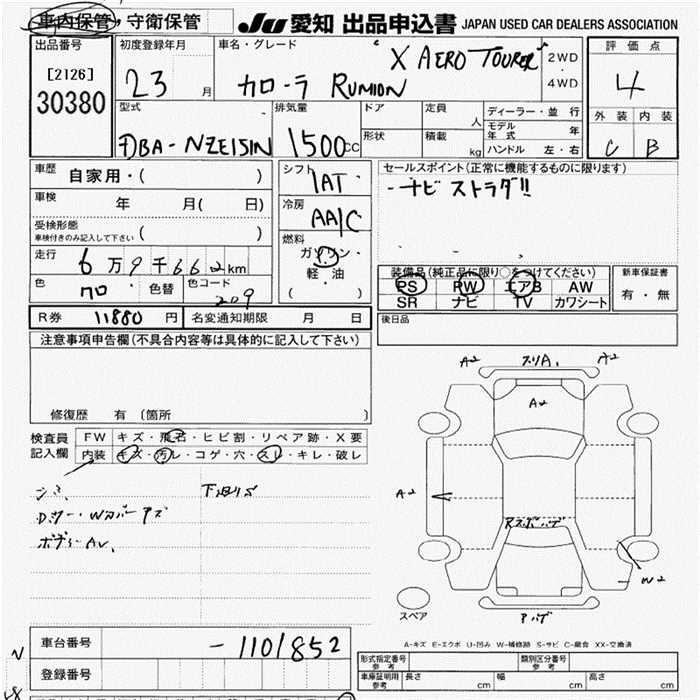 車内保管, 守衛保管
JU 愛知 出品申込書 JAPAN USED CAR DEALERS ASSOCIATION
出品番号
[2126]
30380
初度登録年月
23 月
車名・グレード
"X AERO TOURER"
カローラ RUMION
2WD
・
4WD
評価点
4
外装 内装
C B
型式
DBA-NZE151N
排気量
1500cc
ドア
形状
定員 人
積載 kg
ディーラー・並行
モデル年式 年
ハンドル 左・右
車歴
自家用・( )
車検 年 月( 日)
受検形態
車検付きのみ記入して下さい ( )
走行
6万9千662km
色
クロ
色替
色コード
209
シフト
1AT
冷房
AA/C
燃料
ガソリン・
軽・油
( )
セールスポイント(正常に機能するものに限ります)
ナビ ストラダ!!
装備品(純正品に限り○をつけてください)
PS PW エアB AW
SR ナビ TV カワシート
新車保証書
有・無
R券 11880 円
名変通知期限 月 日
後日品
注意事項申告欄(不具合内容等は具体的に記入して下さい)
修復歴 有 (箇所 )
検査員
記入欄
FW キズ・飛石・ヒビ割・リペア跡・X要
内装 キズ・汚レ・コゲ・穴・スレ・キレ・破レ
シミ
ボディーAU、
A2 スリA、 A2
A2
A2
W2
スペア
A-キズ E-エクボ U-凹み W-補修跡 S-サビ C-腐食 XX-交換済
車台番号
-1101852
登録番号
型式指定番号
参考
類別区分番号
参考
車庫証明用
参考
長さ cm
幅 cm
高さ cm